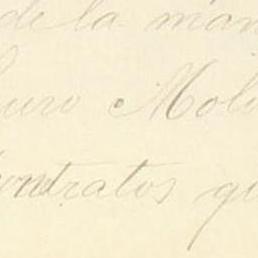 de la man
uro Moli
contratos qu